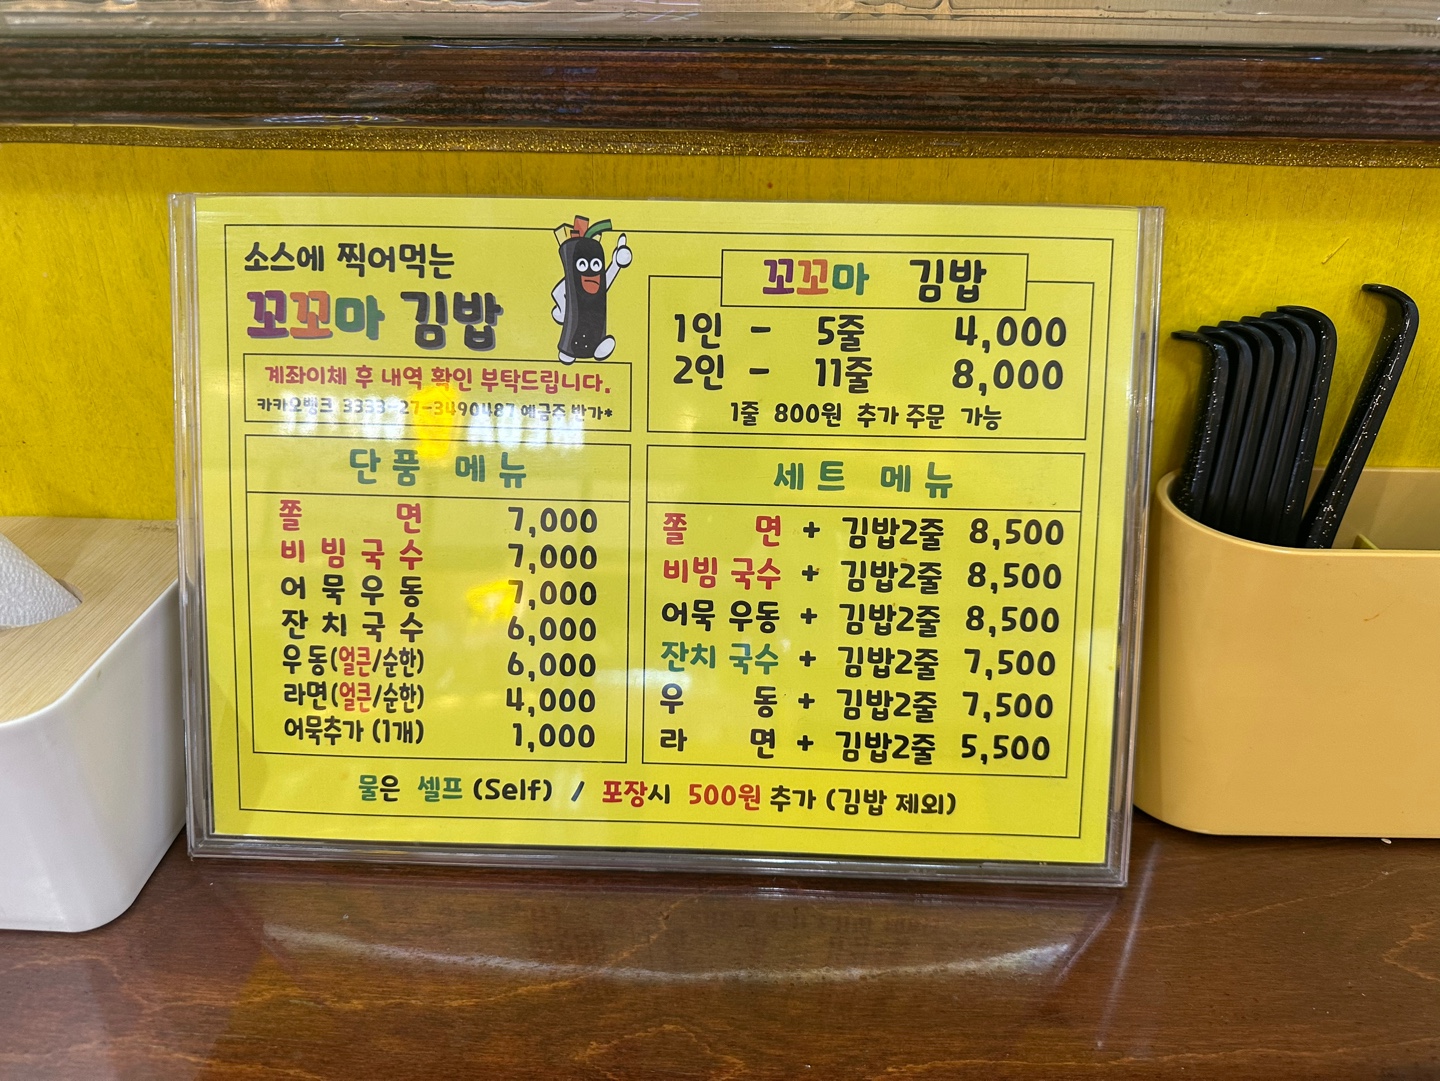 소스에 찍어먹는
꼬꼬마 김밥
계좌이체 후 내역 확인 부탁드립니다.
카카오뱅크 3333-27-3490487 예금주 반가*
꼬꼬마 김밥
1인 - 5줄 4,000
2인 - 11줄 8,000
1줄 800원 추가 주문 가능
단품 메뉴
쫄면 7,000
비빔국수 7,000
어묵우동 7,000
잔치국수 6,000
우동(얼큰/순한) 6,000
라면(얼큰/순한) 4,000
어묵추가 (1개) 1,000
세트 메뉴
쫄면 + 김밥2줄 8,500
비빔국수 + 김밥2줄 8,500
어묵 우동 + 김밥2줄 8,500
잔치 국수 + 김밥2줄 7,500
우동 + 김밥2줄 7,500
라면 + 김밥2줄 5,500
물은 셀프 (Self) / 포장시 500원 추가 (김밥 제외)